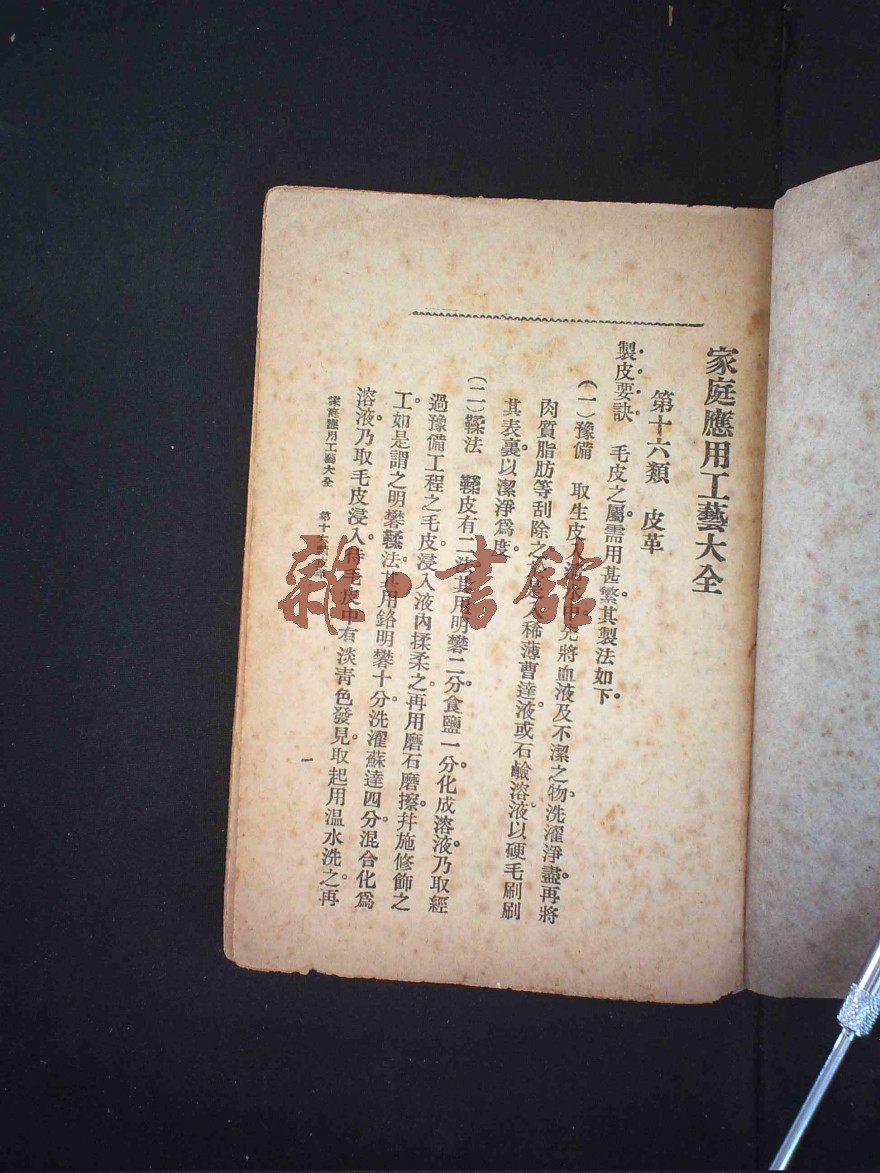 家庭應用工藝大全
第十六類　皮革
製皮要訣　毛皮之屬需用甚繁。其製法如下。
（一）豫備　取生皮入清水中。先將血液及不潔之物洗濯淨盡。再將
肉質脂肪等刮除之。於是入稀薄曹達液。或石鹼溶液。以硬毛刷刷
其表裏。以潔淨爲度。
（二）鞣法　鞣皮有二法。其用明礬二分。食鹽一分。化成溶液。乃取經
過豫備工程之毛皮。浸入液內揉柔之。再用磨石磨擦。幷施修飾之
工。如是謂之明礬鞣法。其用鉻明礬十分。洗濯蘇達四分。混合化爲
溶液。乃取毛皮浸入。待毛皮中有淡青色發見。取起用温水洗之。再
家庭應用工藝大全　第十六類
一
雜·書館